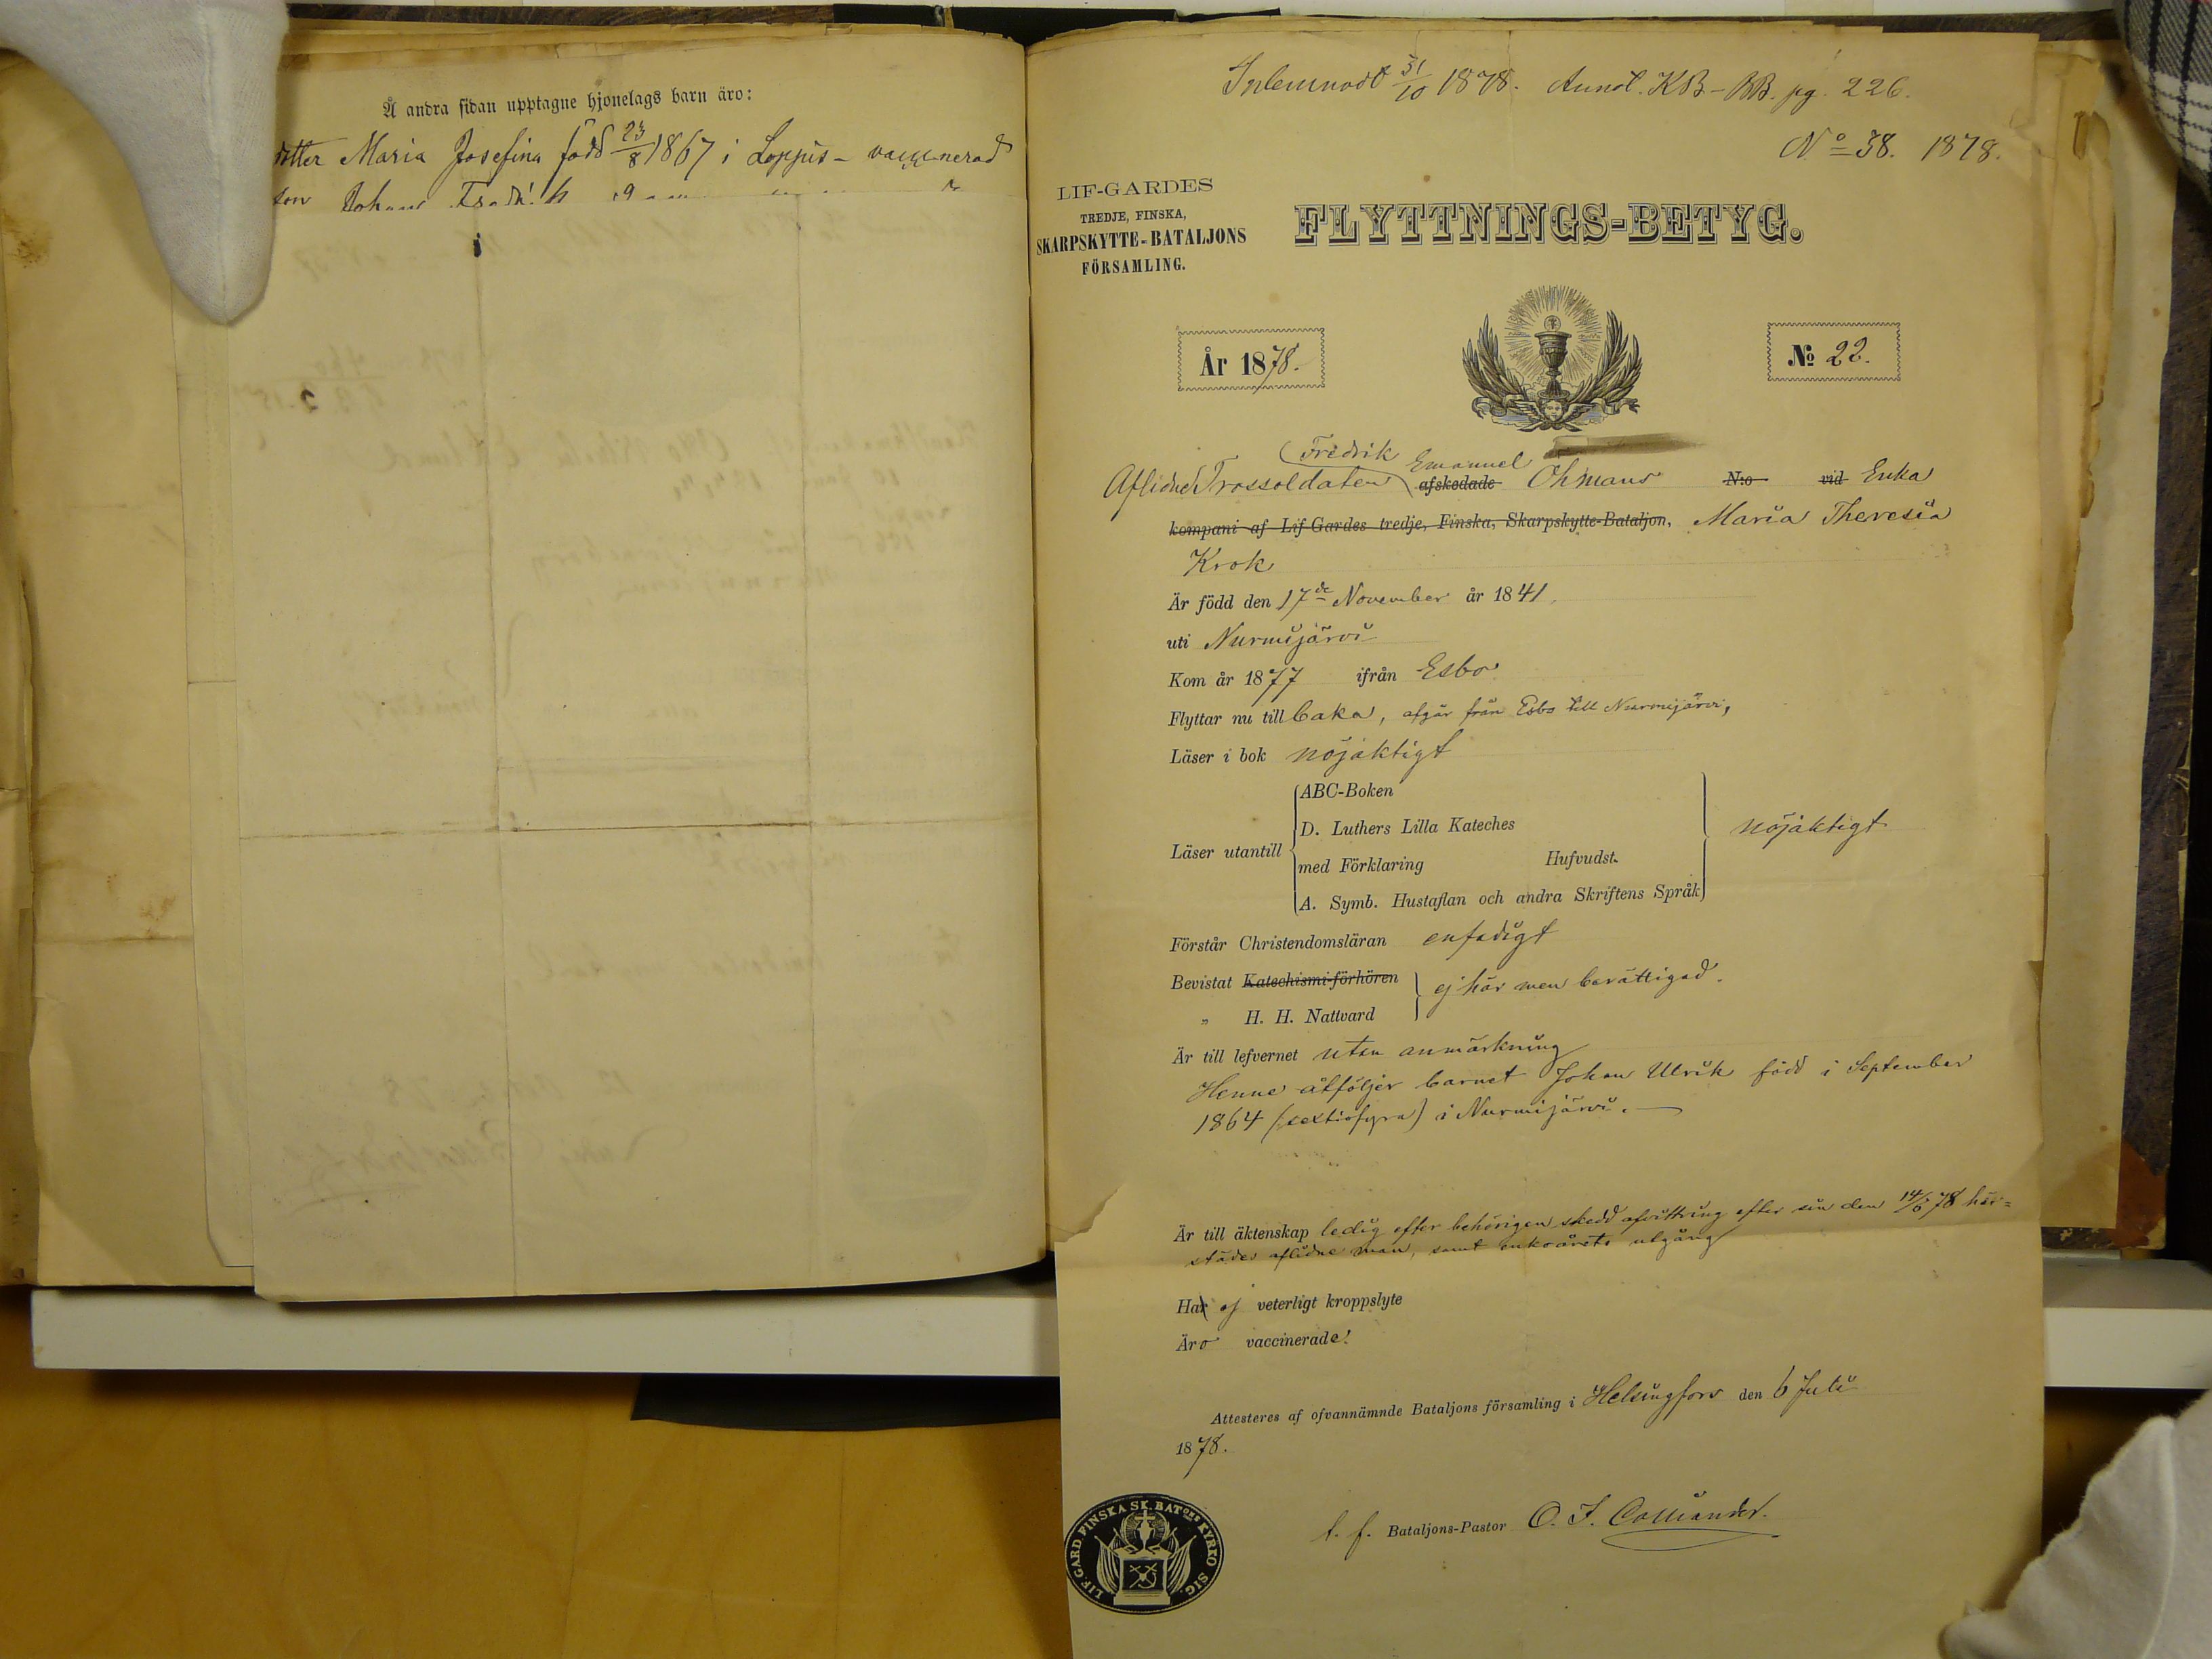 Å andra sidan upptagne hjonelags barn äro:
dotter Maria Josefina född 23/8 1867 i Loppis - vaccinerad
son Johan Fredrik
Inlemnadt 31/10 1878. Annot. KB-BB. pg. 226.
No 38. 1878.
LIF-GARDES
TREDJE, FINSKA,
SKARPSKYTTE-BATALJONS
FÖRSAMLING.
FLYTTNINGS-BETYG.
År 1878.
No 22.
Fredrik Emanuel
Aflidne Trossoldaten afskedade Öhmans N:o vid Enka
kompani af Lif-Gardes tredje, Finska, Skarpskytte-Bataljon, Maria Theresia
Krok
Är född den 17de November år 1841.
uti Nurmijärvi
Kom år 1877 ifrån Esbo
Flyttar nu tillbaka, afgår från Esbo till Nurmijärvi,
Läser i bok nöjaktigt
Läser utantill
ABC-Boken
D. Luthers Lilla Kateches
med Förklaring Hufvudst.
A. Symb. Hustaflan och andra Skriftens Språk
nöjaktigt
Förstår Christendomsläran enfadigt
Bevistat Katechismi-förhören
„ H. H. Nattvard
ej här men berättigad.
Är till lefvernet utan anmärkning
Henne åtföljer barnet Johan Ulrik född i September
1864 (sextiofyra) i Nurmijärvi.
Är till äktenskap ledig efter behörigen skedd afvittring efter sin den 78 här=
städes aflidne man, samt enkoårets utgång
Har ej veterligt kroppslyte
Äro vaccinerade.
Attesteres af ofvannämnde Bataljons församling i Helsingfors den 6 Juli
1878.
t. f. Bataljons-Pastor O. I. Colliander.
LIF-GARD FINSKA SK. BATONS KYRKO SIG.